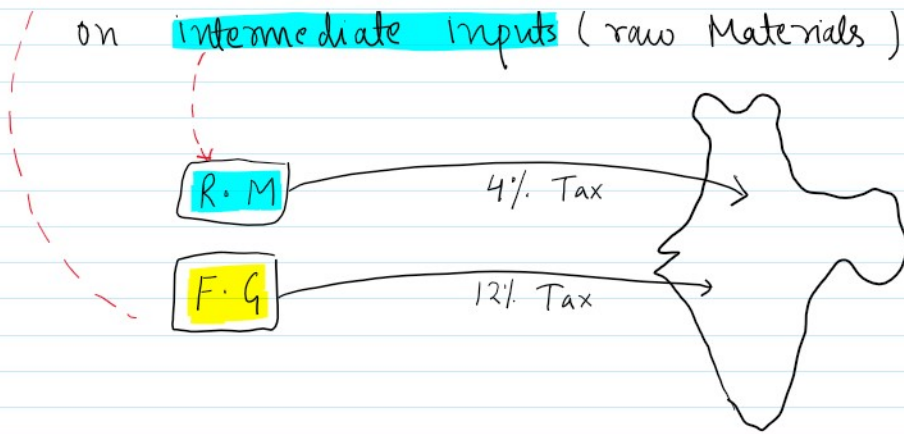 on intermediate inputs (raw Materials)
R. M
4% Tax
F. G
12% Tax